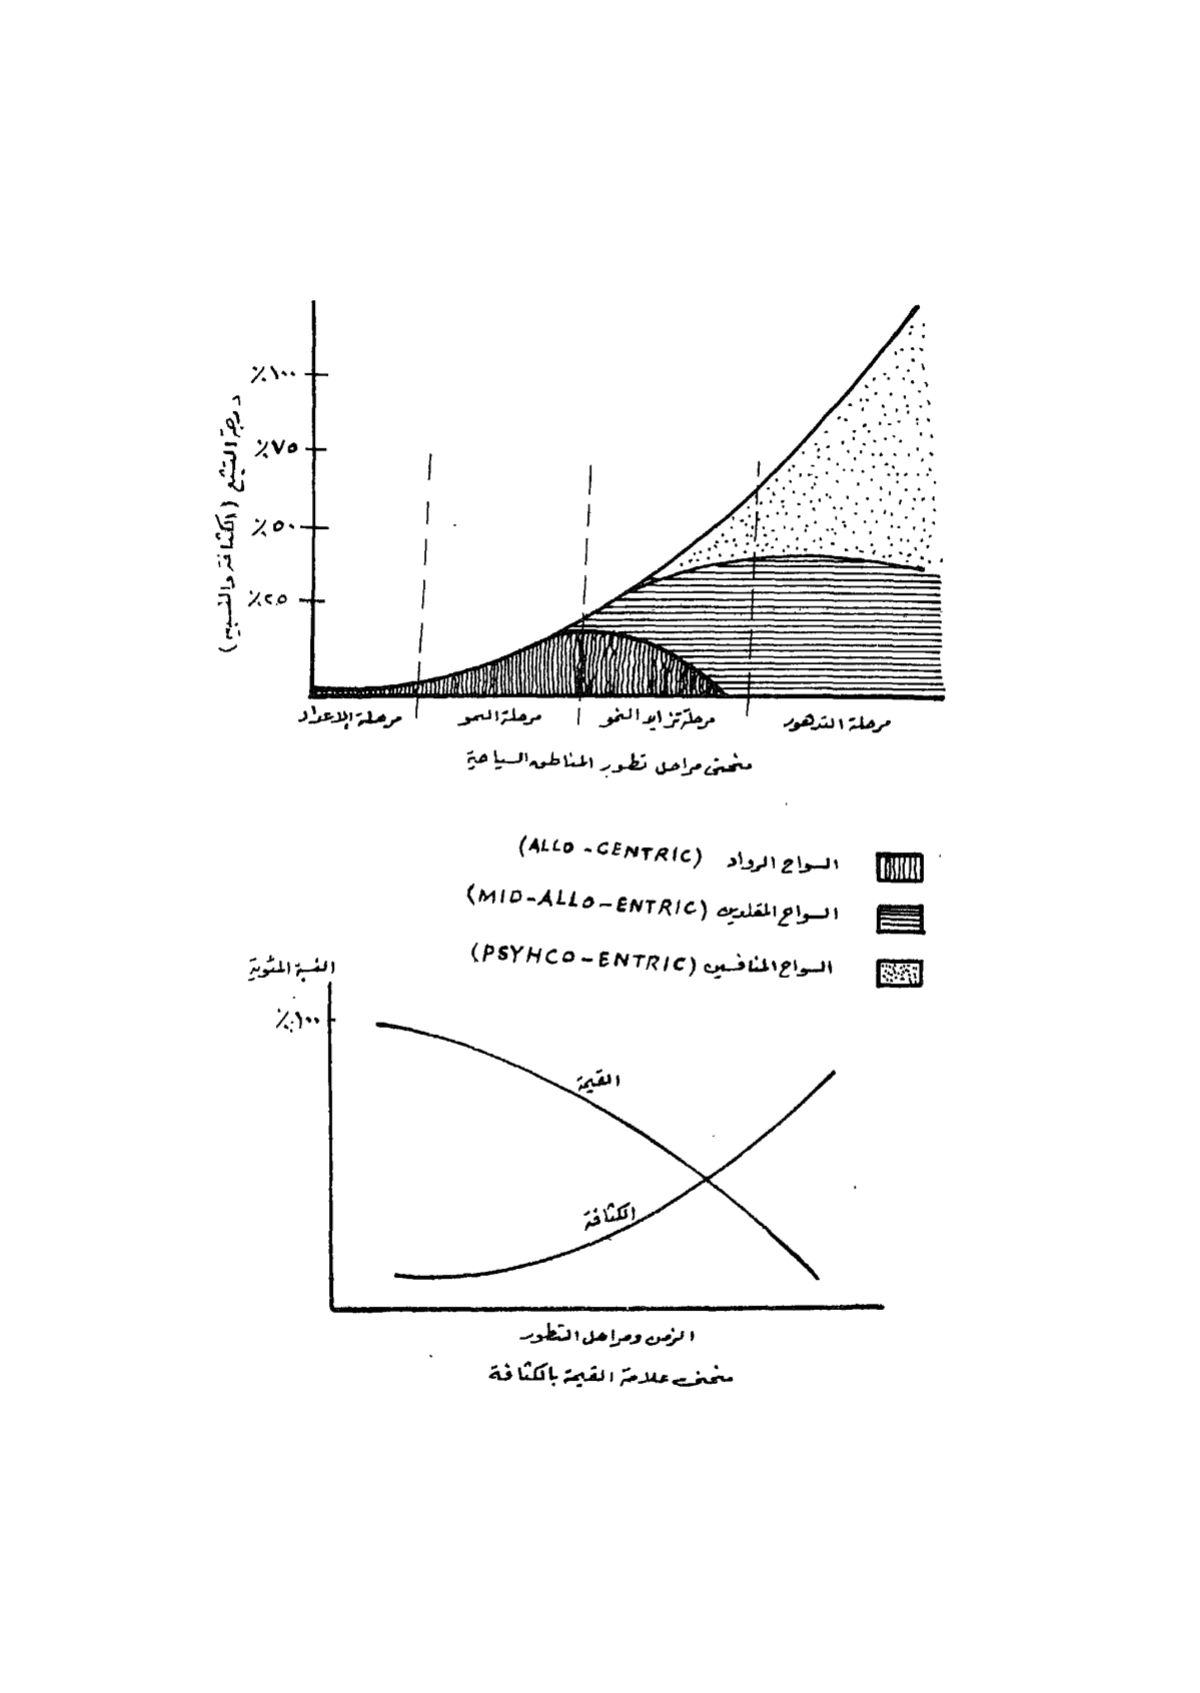 ٪١٠٠
٪٧٥
٪٥٠
٪٢٥
درجة التشبع (الكثافة والنسبية)
مرحلة الاعداد
مرحلة النمو
مرحلة تزايد النمو
مرحلة التدهور
منحنى مراحل تطور المناطق السياحية
السواح الرواد (ALLO-CENTRIC)
السواح المقلدين (MID-ALLO-ENTRIC)
السواح المنافسين (PSYHCO-ENTRIC)
النسبة المئوية
٪١٠٠
القيمة
الكثافة
الزمن ومراحل التطور
منحنى علاقة القيمة بالكثافة